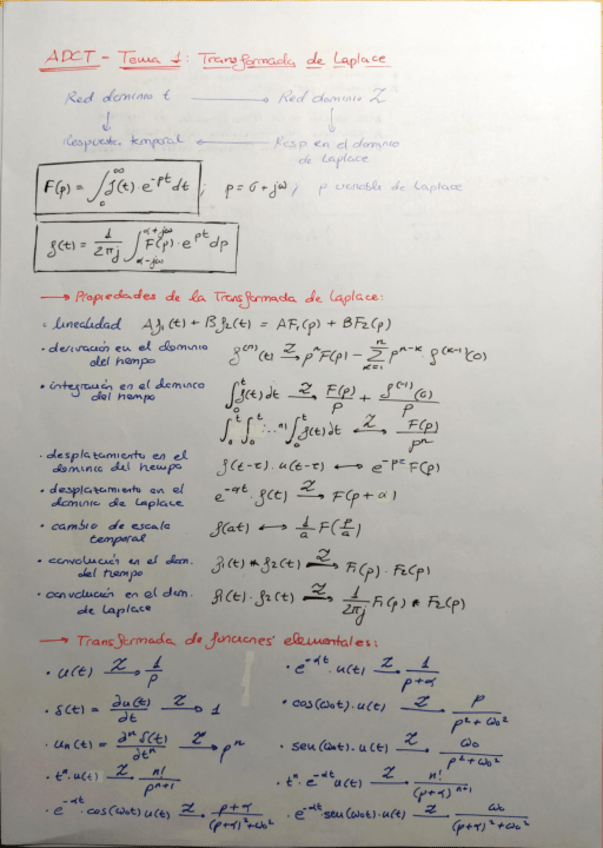 ADCT - Tema 1: Transformada de Laplace
Red dominio t ⟶ Red dominio ℒ
↓ ↓
Respuesta temporal ⟵ Resp en el dominio
de Laplace
F(p) = ∫₀^∞ f(t)·e^(-pt) dt ; p = σ + jω ; p variable de Laplace
f(t) = 1/(2πj) ∫_(α-jω)^(α+jω) F(p)·e^(pt) dp
→ Propiedades de la Transformada de Laplace:
• linealidad Af₁(t) + Bf₂(t) = AF₁(p) + BF₂(p)
• derivación en el dominio
del tiempo f^(n)(t) ℒ→ p^n F(p) - Σ_(k=1)^n p^(n-k)·f^(k-1)(0)
• integración en el dominio
del tiempo ∫₀^t f(t) dt ℒ→ F(p)/p + f^(-1)(0)/p
∫₀^t ∫₀^t ...n) ∫₀^t f(t) dt ⟷ℒ F(p)/p^n
• desplazamiento en el
dominio del tiempo f(t-τ)·u(t-τ) ⟷ e^(-pτ) F(p)
• desplazamiento en el
dominio de Laplace e^(-αt)·f(t) ℒ→ F(p+α)
• cambio de escala
temporal f(at) ⟷ 1/a F(p/a)
• convolución en el dom.
del tiempo f₁(t) * f₂(t) ℒ→ F₁(p)·F₂(p)
• convolución en el dom.
de Laplace f₁(t)·f₂(t) ℒ→ 1/(2πj) F₁(p) * F₂(p)
→ Transformada de funciones elementales:
• u(t) ℒ→ 1/p • e^(-αt)·u(t) ℒ→ 1/(p+α)
• δ(t) = ∂u(t)/∂t ℒ→ 1 • cos(ω₀t)·u(t) ℒ→ p/(p²+ω₀²)
• uₙ(t) = ∂ⁿδ(t)/∂tⁿ ℒ→ pⁿ • sen(ω₀t)·u(t) ℒ→ ω₀/(p²+ω₀²)
• tⁿ·u(t) ℒ→ n!/p^(n+1) • tⁿ·e^(-αt) u(t) ℒ→ n!/(p+α)^(n+1)
• e^(-αt)·cos(ω₀t) u(t) ℒ→ (p+α)/((p+α)²+ω₀²) • e^(-αt) sen(ω₀t)·u(t) ℒ→ ω₀/((p+α)²+ω₀²)